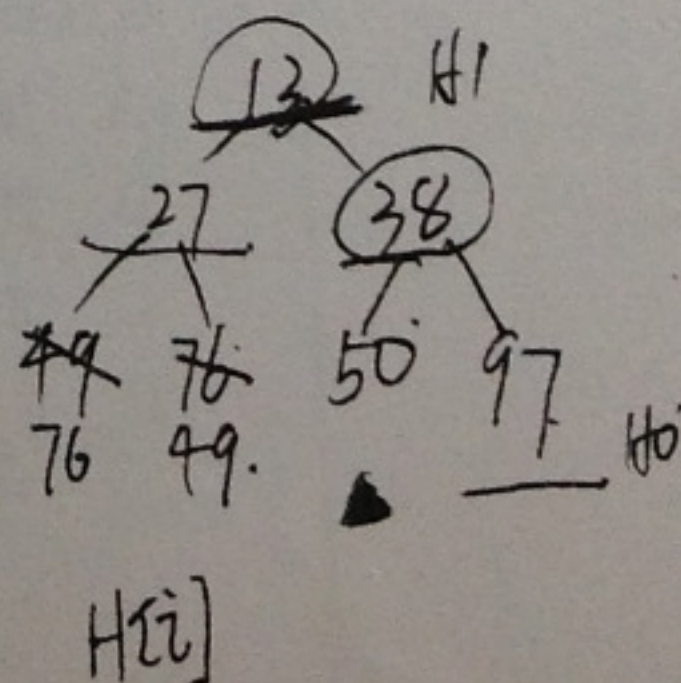 13 H1
27 38
49 76 50 97
76 49. H0
H[i]